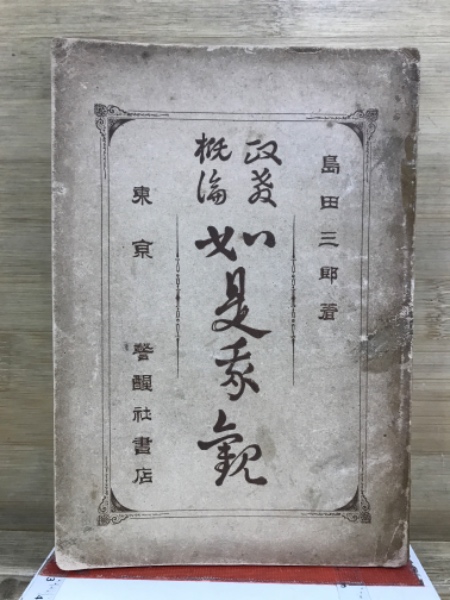 島田三郎著
政教
概論
如是我観
東京 警醒社書店
3
4